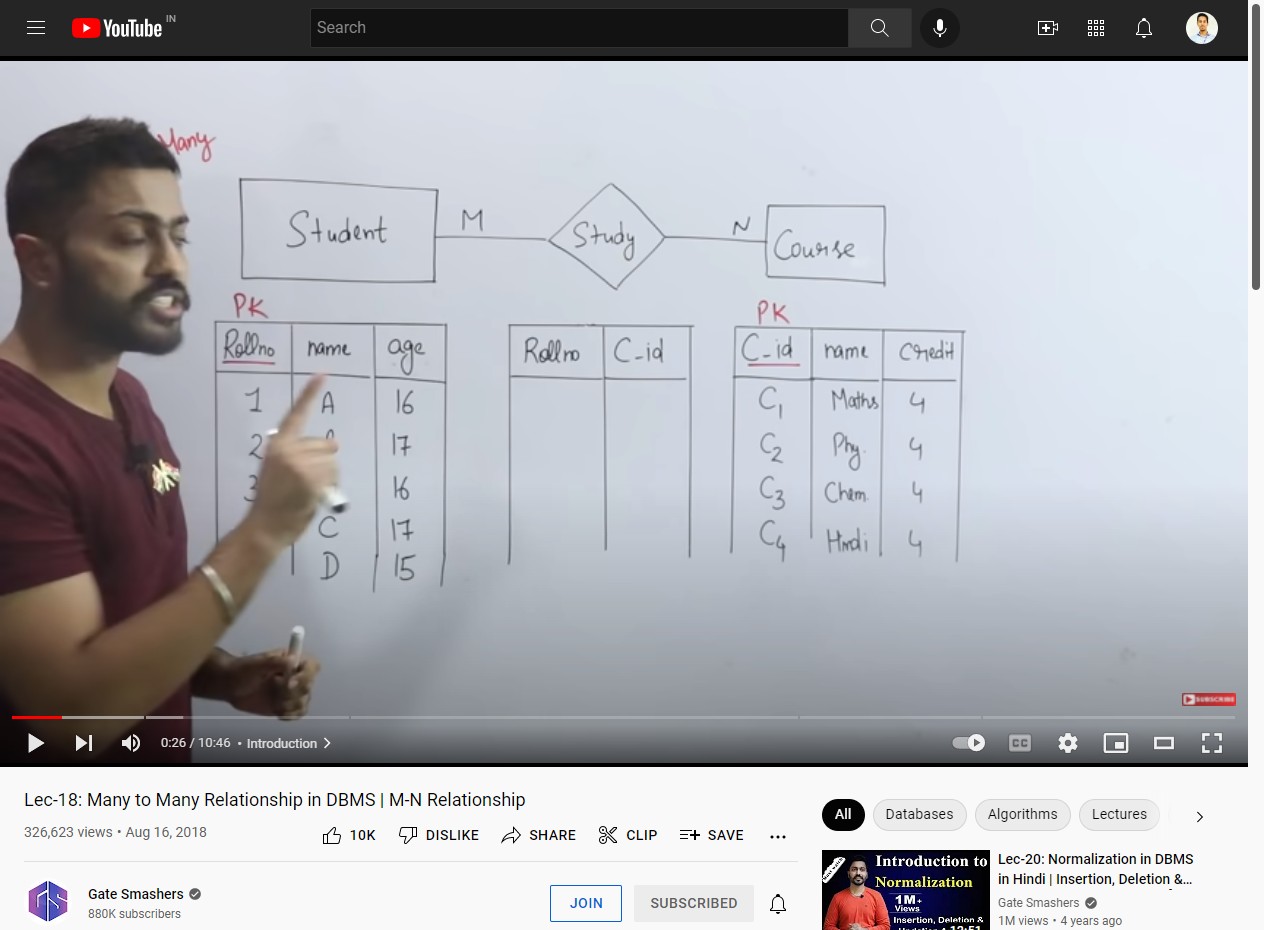 YouTube IN
Search
Many
Student
M
Study
N
Course
PK
PK
Rollno name age
Rollno C-id
C-id name Credit
1 A 16
C1 Maths 4
2 17
C2 Phy. 4
3 16
C3 Chem. 4
C 17
C4 Hindi 4
D 15
SUBSCRIBE
0:26 / 10:46 • Introduction
CC
Lec-18: Many to Many Relationship in DBMS | M-N Relationship
326,623 views • Aug 16, 2018
10K DISLIKE SHARE CLIP SAVE
Gate Smashers
880K subscribers
JOIN SUBSCRIBED
All Databases Algorithms Lectures
Introduction to
Normalization
1M+
Views
Insertion, Deletion &
12:51
Lec-20: Normalization in DBMS
in Hindi | Insertion, Deletion &...
Gate Smashers
1M views • 4 years ago